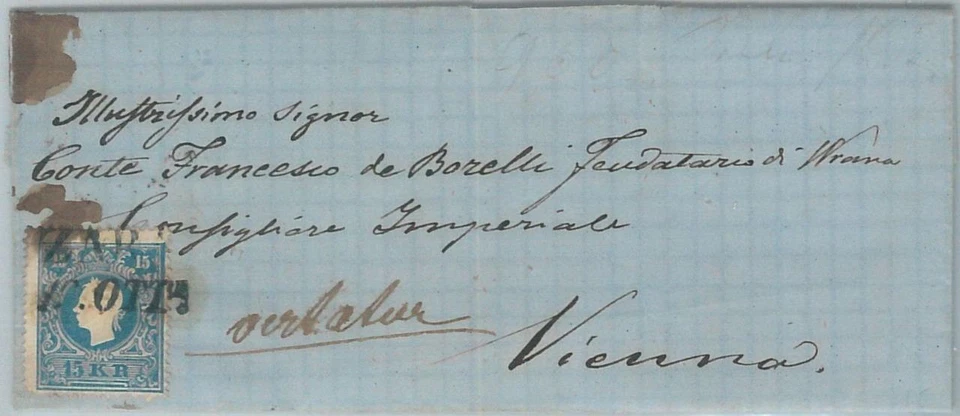 Illustrissimo Signor
Conte Francesco de Borelli Feudatario di Wrana
Consigliere Imperiale
ZARA
OTT.
15
15 KR
vertatur
Vienna.